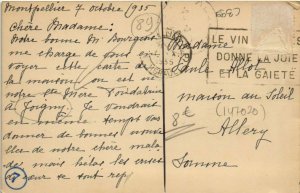 Montpellier 7 octobre 1935
Chère Madame:
Notre bonne M Bourgone
me charge de vous en
voyer cette carte de
la maison, ou est né
notre Ste Mère
à Joigny. Je voudrait
en même temps vous
donner de bonnes
de notre chère mala
des mais hélas les
de jour se tout rep
(89)
LE VIN
DONNE LA JOIE
ET LA GAIETÉ
Madame
maison au Soleil
(147020)
8€
Allery
Somme